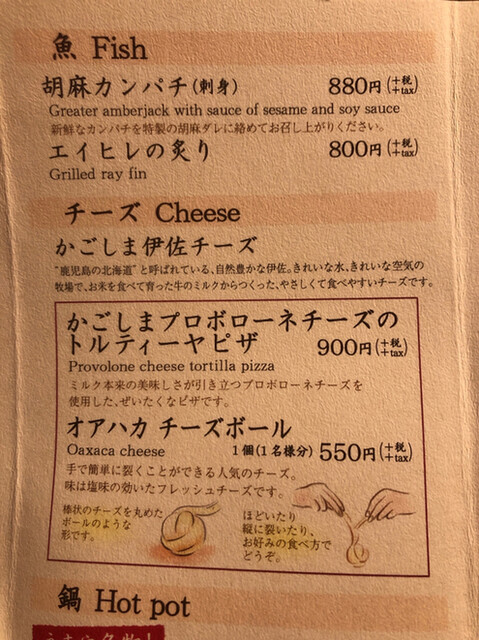 魚 Fish
胡麻カンパチ(刺身) 880円(+税 +tax)
Greater amberjack with sauce of sesame and soy sauce
新鮮なカンパチを特製の胡麻ダレに絡めてお召し上がりください。
エイヒレの炙り 800円(+税 +tax)
Grilled ray fin
チーズ Cheese
かごしま伊佐チーズ
"鹿児島の北海道"と呼ばれている、自然豊かな伊佐。きれいな水、きれいな空気の
牧場で、お米を食べて育った牛のミルクからつくった、やさしくて食べやすいチーズです。
かごしまプロボローネチーズの
トルティーヤピザ 900円(+税 +tax)
Provolone cheese tortilla pizza
ミルク本来の美味しさが引き立つプロボローネチーズを
使用した、ぜいたくなピザです。
オアハカ チーズボール
Oaxaca cheese 1個(1名様分) 550円(+税 +tax)
手で簡単に裂くことができる人気のチーズ。
味は塩味の効いたフレッシュチーズです。
棒状のチーズを丸めた
ボールのような
形です。
ほどいたり
縦に裂いたり、
お好みの食べ方で
どうぞ。
鍋 Hot pot